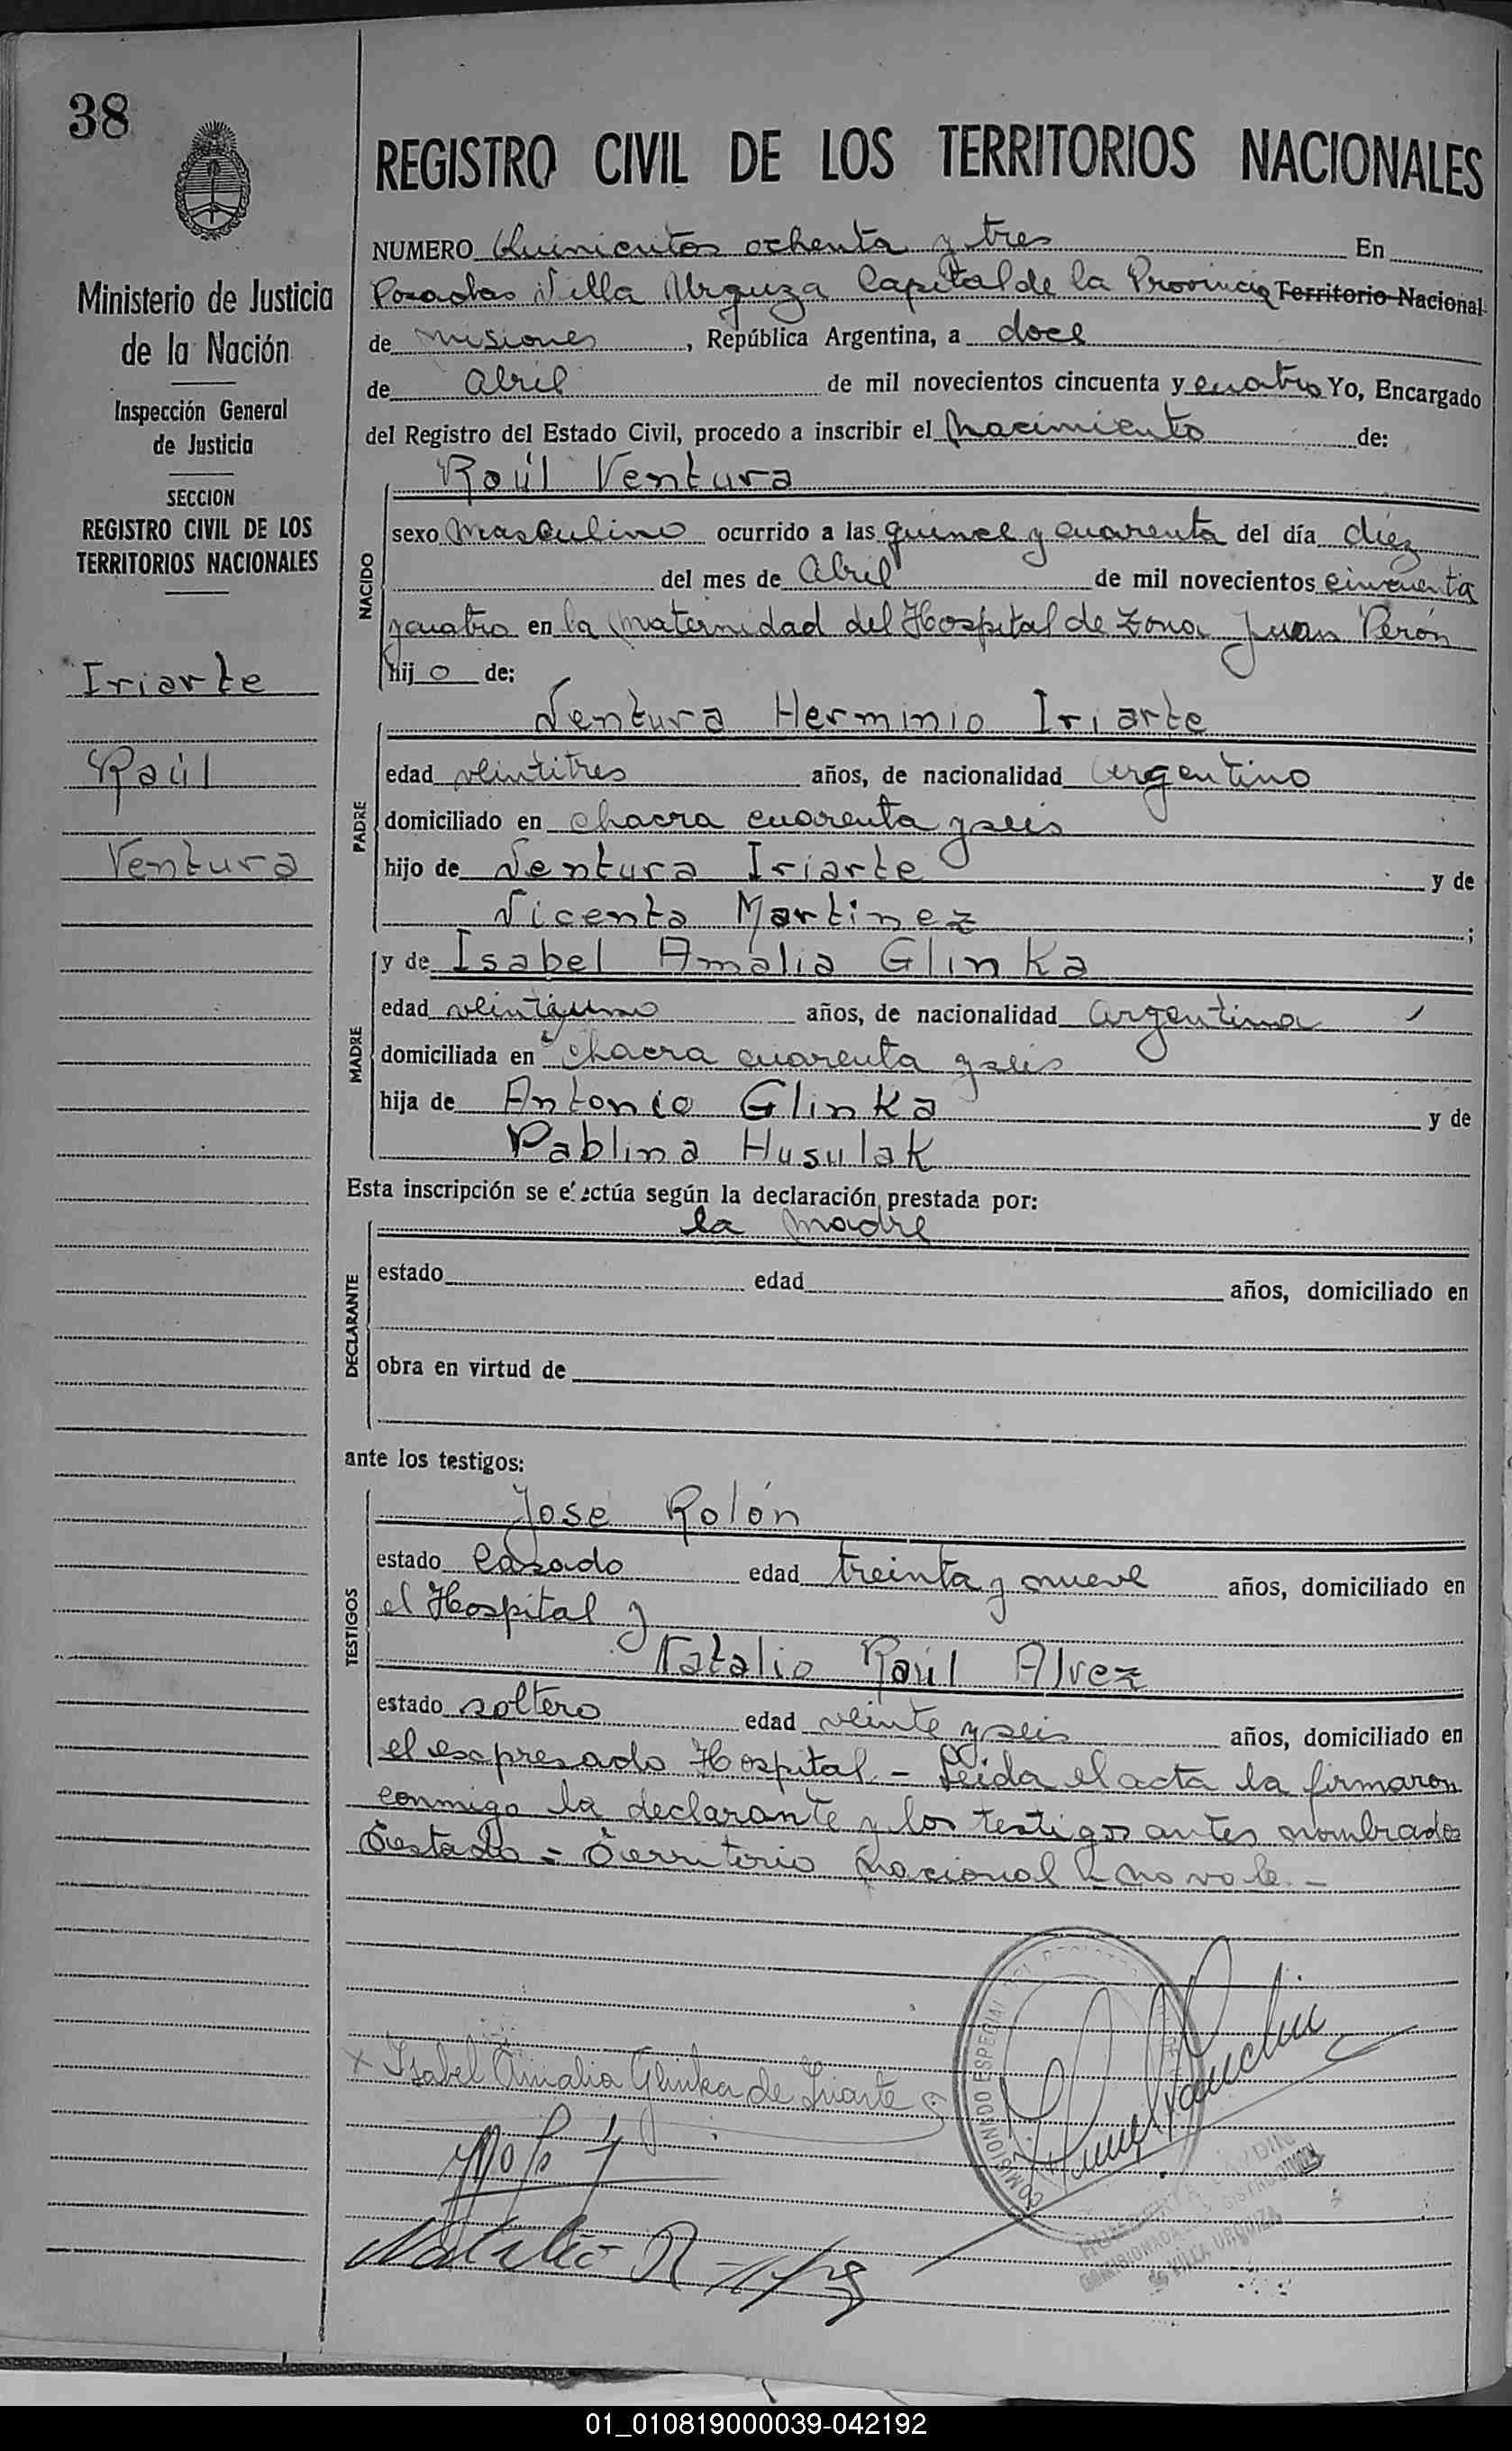 38
REGISTRO CIVIL DE LOS TERRITORIOS NACIONALES
Ministerio de Justicia
de la Nación
Inspección General
de Justicia
SECCION
REGISTRO CIVIL DE LOS
TERRITORIOS NACIONALES
Iriarte
Raúl
Ventura
NUMERO Quinientos ochenta y tres En
Posadas Villa Urquiza Capital de la Provincia Territorio Nacional
de Misiones, República Argentina, a doce
de Abril de mil novecientos cincuenta y cuatro Yo, Encargado
del Registro del Estado Civil, procedo a inscribir el Nacimiento de:
NACIDO
Raúl Ventura
sexo Masculino ocurrido a las quince y cuarenta del día diez
del mes de Abril de mil novecientos cincuenta
y cuatro en la Maternidad del Hospital de Zona Juan Perón
hijo de:
PADRE
Ventura Herminio Iriarte
edad veintitres años, de nacionalidad Argentino
domiciliado en chacra cuarenta y seis
hijo de Ventura Iriarte y de
Vicenta Martinez;
MADRE
y de Isabel Amalia Glinka
edad veintiuno años, de nacionalidad Argentina
domiciliada en chacra cuarenta y seis
hija de Antonio Glinka y de
Pablina Husulak
Esta inscripción se efectúa según la declaración prestada por:
DECLARANTE
la madre
estado edad años, domiciliado en
obra en virtud de
ante los testigos:
TESTIGOS
José Rolón
estado casado edad treinta y nueve años, domiciliado en
el Hospital y
Natalio Raúl Alvez
estado soltero edad veinte y seis años, domiciliado en
el expresado Hospital - Leida el acta la firmaron
conmigo la declarante y los testigos antes nombrados
Testado = Territorio Nacional = no vale. -
x Isabel Amalia Glinka de Iriarte
COMISIONADO ESPECIAL
Natalio R
VILLA URQUIZA
01_010819000039-042192